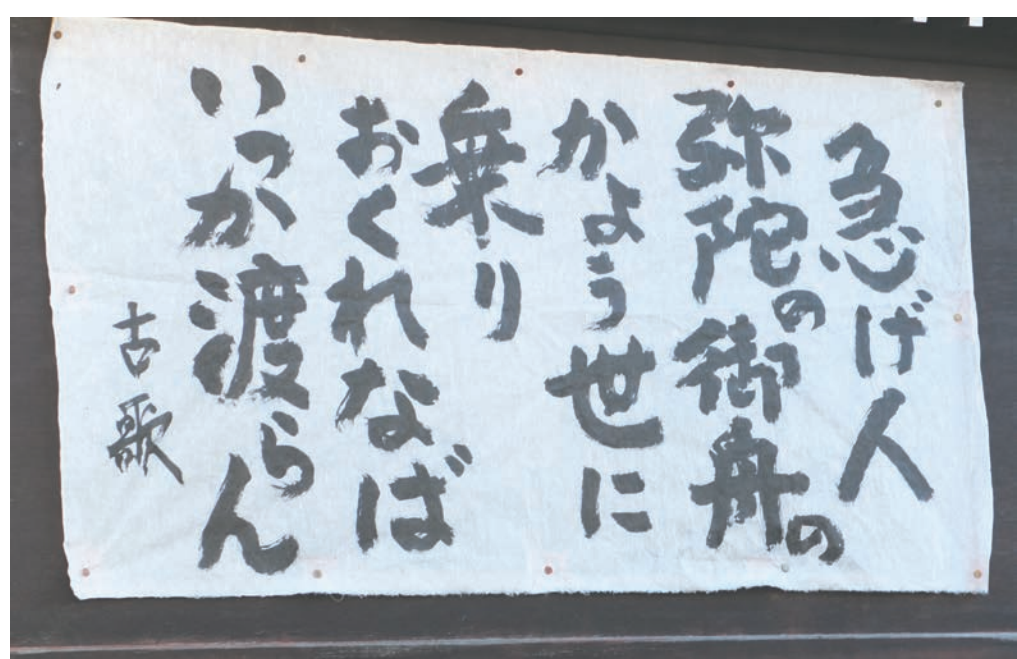 急げ人
弥陀の御舟の
かよう世に
乗り
おくれなば
いつか渡らん
古歌